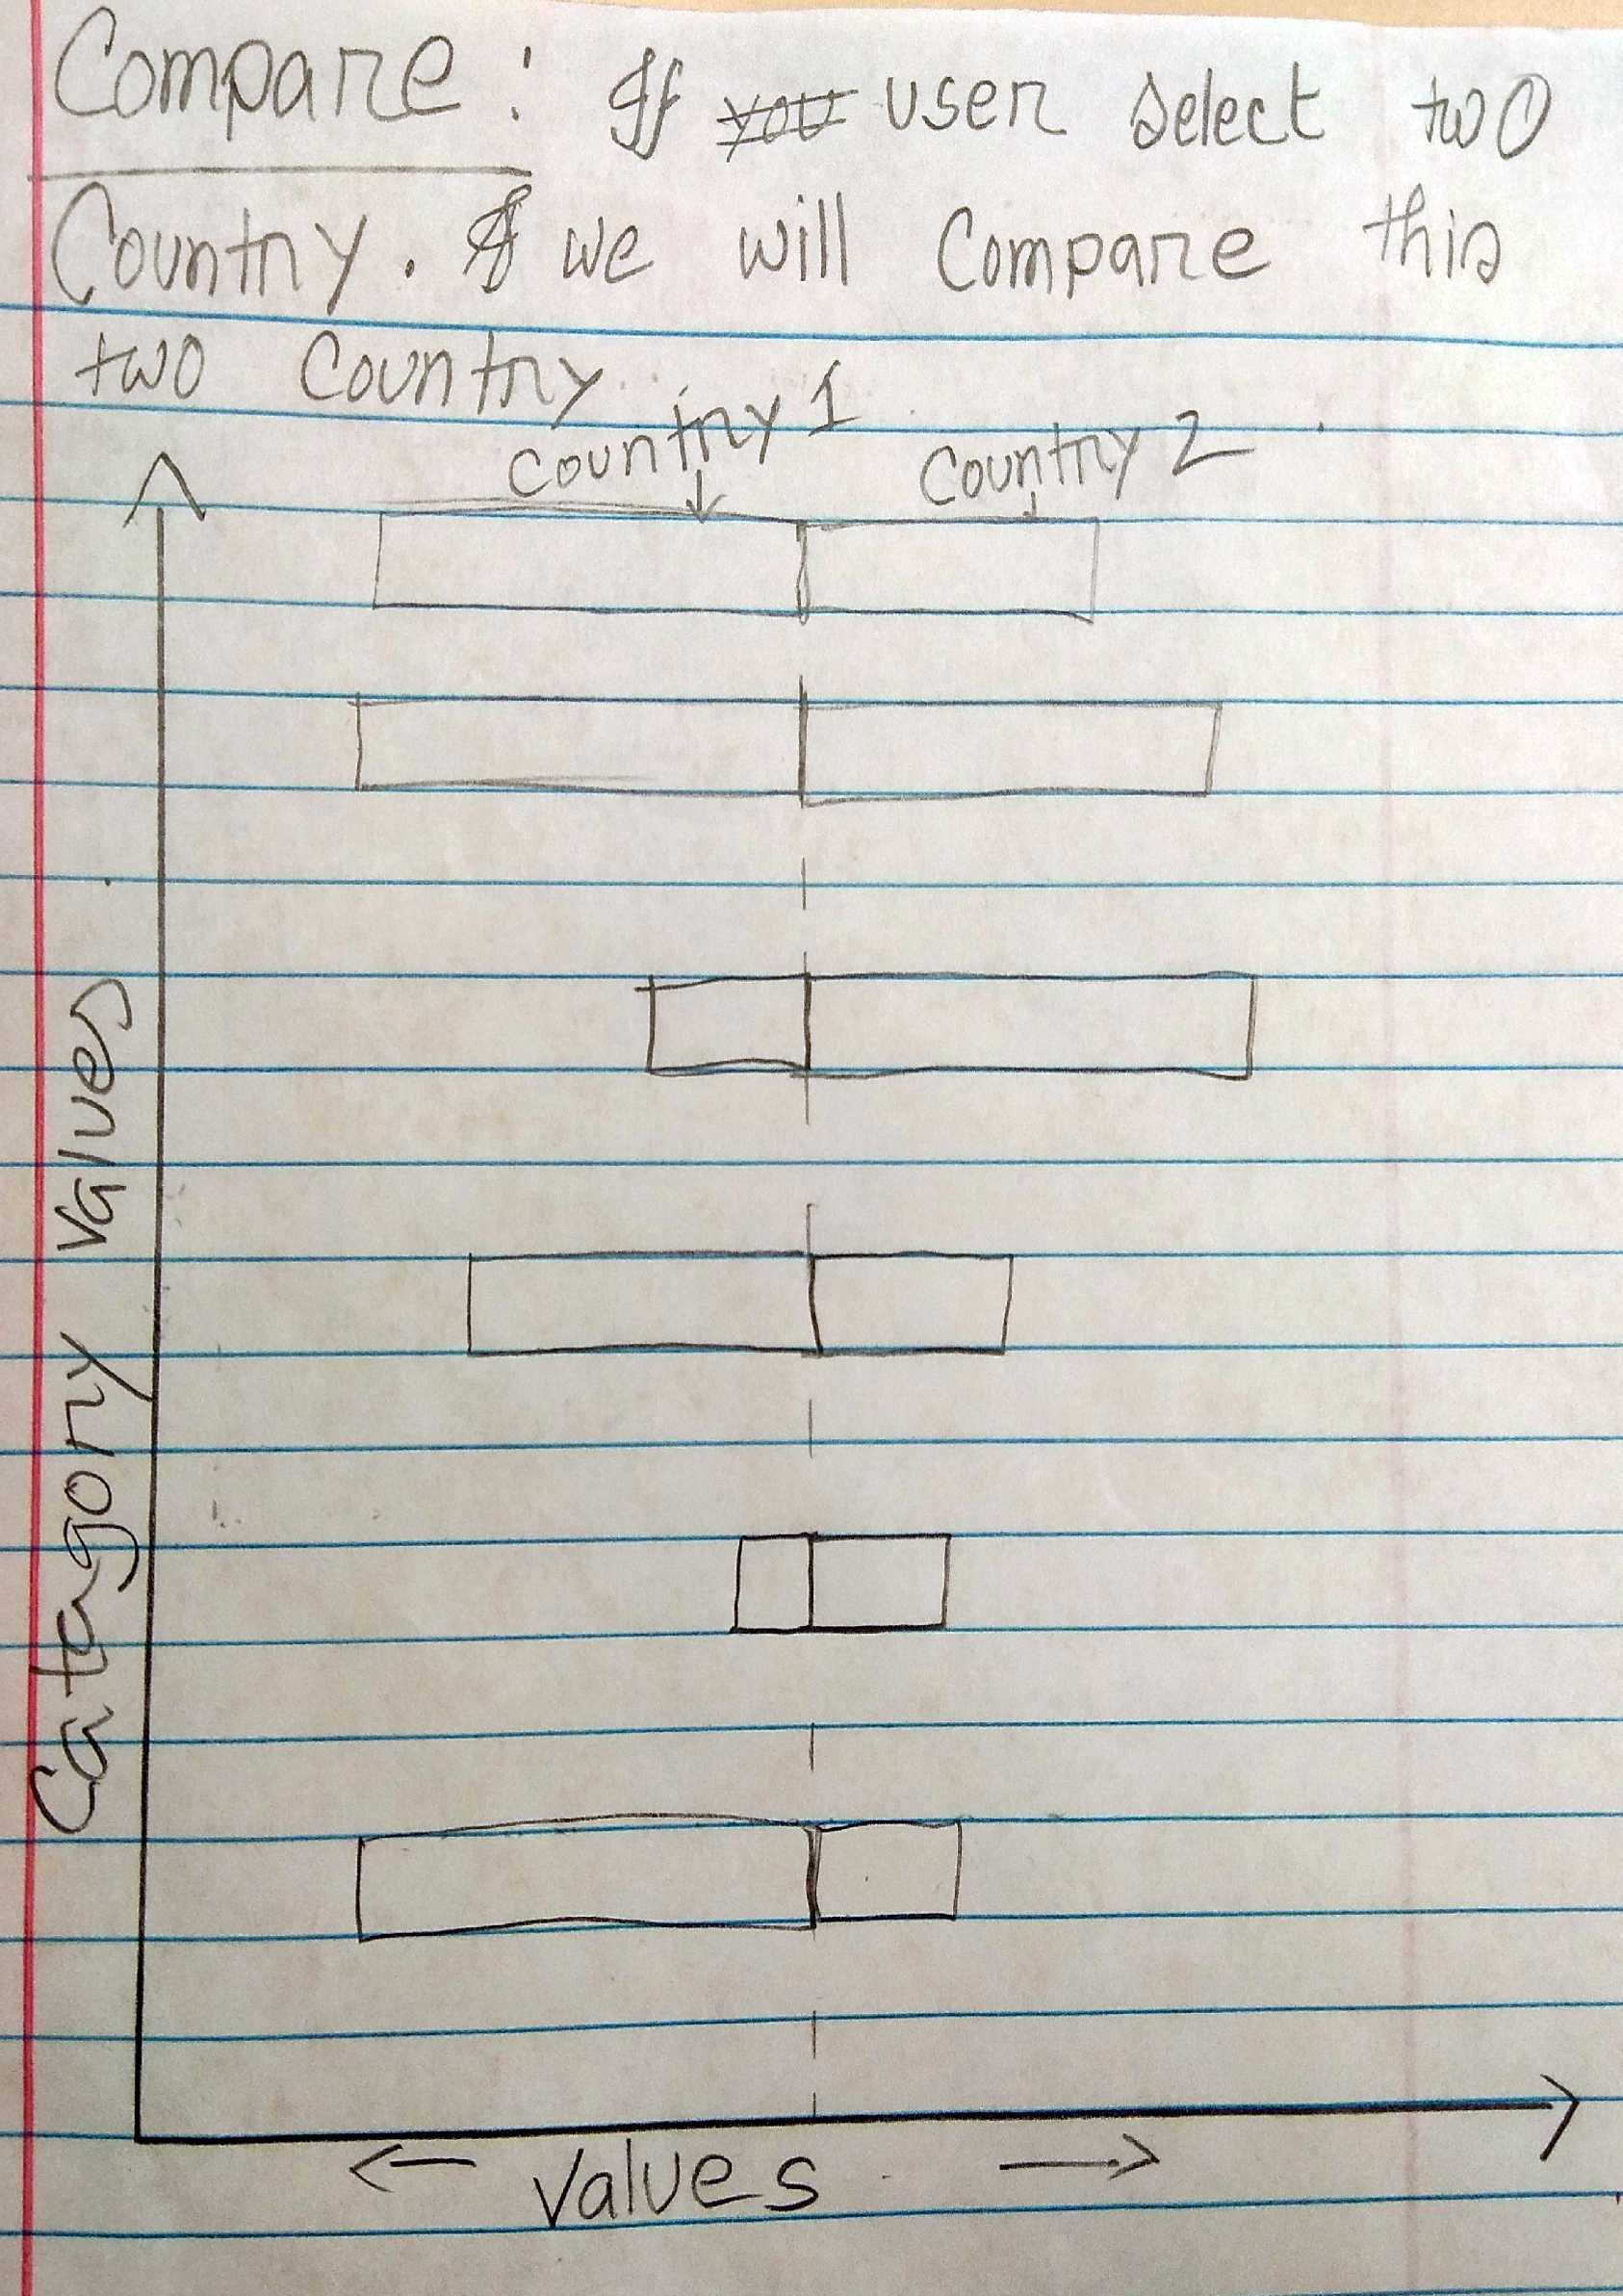 Compare: If you user select two
Country. If we will Compare this
two Country
Country 1
Country 2
Catagory values
values